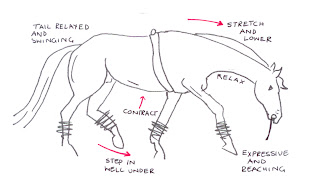 TAIL RELAYED
AND
SWINGING
STRETCH
AND
LOWER
RELAX
CONTRACT
STEP IN
WELL UNDER
EXPRESSIVE
AND
REACHING